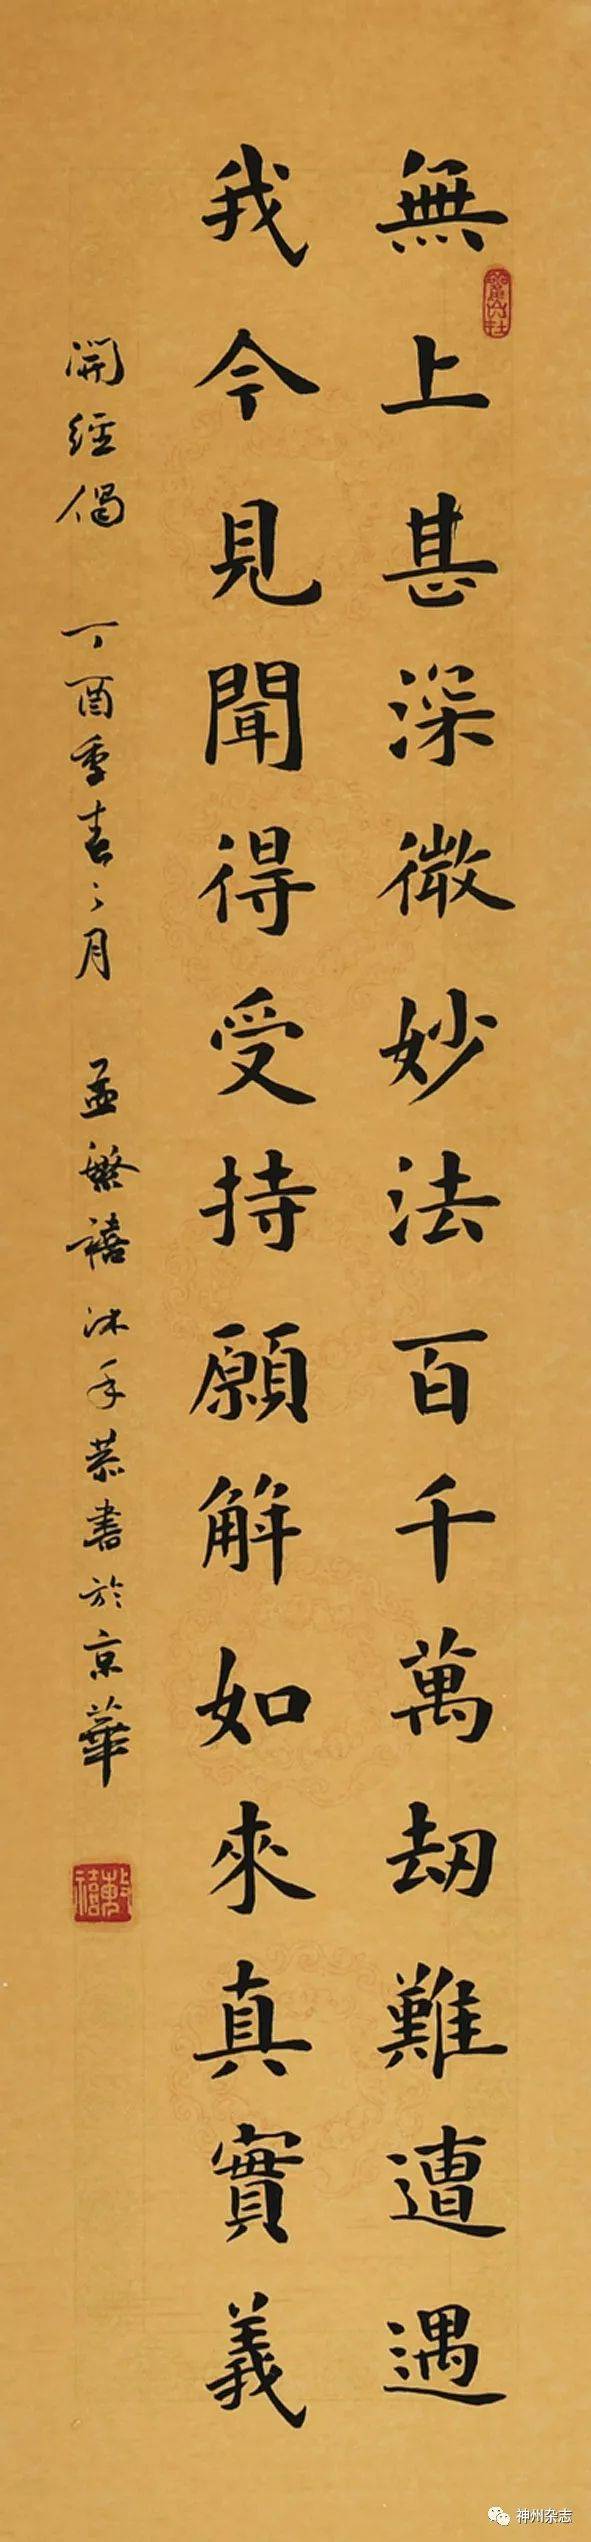 無上甚深微妙法百千萬劫難遭遇
我今見聞得受持願解如來真實義
開經偈 丁酉季春之月 孟繁禧沐手恭書於京華
神州杂志